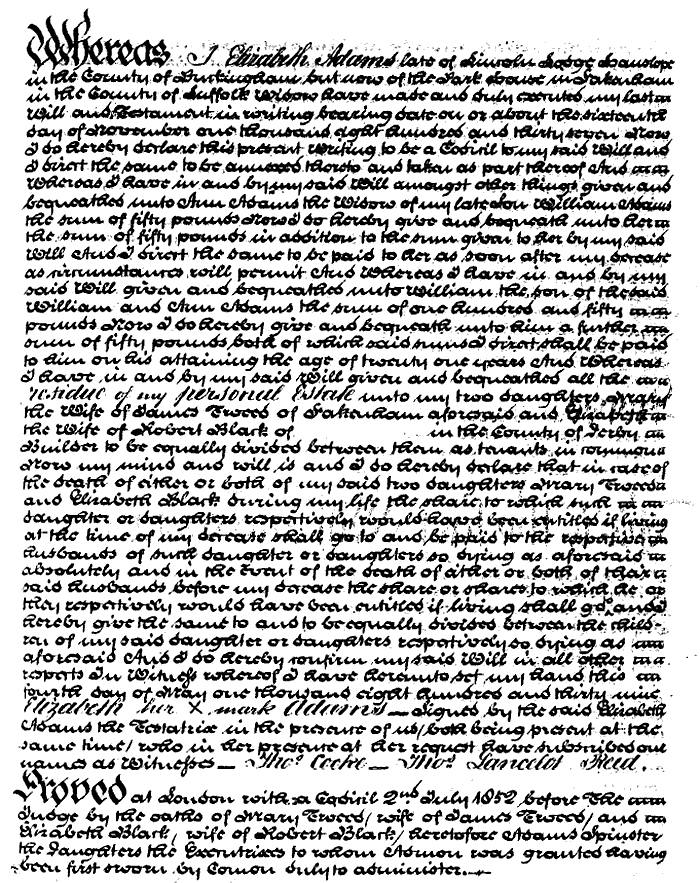 Whereas I Elizabeth Adams late of Lincoln Lodge Hanslope
in the County of Buckingham but now of the Park House in Pakenham
in the County of Suffolk Widow have made and duly executed my last
Will and Testament in writing bearing date on or about the sixteenth
day of November one thousand eight hundred and thirty seven Now
I do hereby declare this present writing to be a Codicil to my said Will and
I direct the same to be annexed thereto and taken as part thereof And
Whereas I have in and by my said Will amongst other things given and
bequeathed unto Ann Adams the Widow of my late son William Adams
the sum of fifty pounds Now I do hereby give and bequeath unto her
the sum of fifty pounds in addition to the sum given to her by my said
Will And I direct the same to be paid to her as soon after my decease
as circumstances will permit And Whereas I have in and by my
said Will given and bequeathed unto William the son of the said
William and Ann Adams the sum of one hundred and fifty
pounds Now I do hereby give and bequeath unto him a further
sum of fifty pounds both of which said sums I direct shall be paid
to him on his attaining the age of twenty one years And Whereas
I have in and by my said Will given and bequeathed all the
residue of my personal Estate unto my two daughters Mary
the Wife of James of Pakenham aforesaid and Elizabeth
the Wife of Robert Black of in the County of Derby
Builder to be equally divided between them as tenants in common
Now my mind and will is and I do hereby declare that in case of
the death of either or both of my said two daughters Mary
and Elizabeth Black during my life the share to which such
daughter or daughters respectively would have been entitled if living
at the time of my decease shall go to and be paid to the respective
husbands of such daughter or daughters so dying as aforesaid
absolutely and in the Event of the death of either or both of their
said husbands before my decease the share or shares to which he or
they respectively would have been entitled if living shall go and I
hereby give the same to and to be equally divided between the child-
ren of my said daughter or daughters respectively so dying as
aforesaid And I do hereby confirm my said Will in all other
respects In Witness whereof I have hereunto set my hand this
fourth day of May one thousand eight hundred and thirty nine
Elizabeth her X mark Adams — Signed by the said Elizabeth
Adams the Testatrix in the presence of us/ both being present at the
same time/ who in her presence at her request have subscribed our
names as Witnesses — Thos. Cocke — Thos. Lancelot Reed.
Proved at London with a Codicil 2nd July 1852 before The
Judge by the oaths of Mary wife of James and
Elizabeth Black, wife of Robert Black/ heretofore Adams Spinster
the daughters the Executrixes to whom Admon was granted having
been first sworn by Comon duly to administer.—